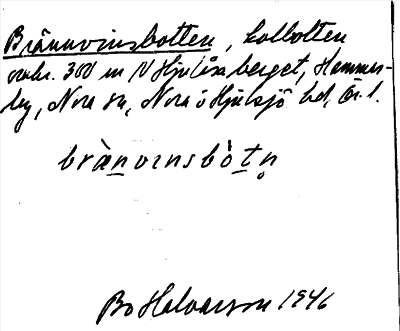 Brännvinsbotten, kolbotten
omkr. 300 m N Hjulåsaberget, Hammar-
by, Nora sn, Nora o Hjulsjö bd, Ör. l.
brànvinsbòtn̥
Bo Halvarson 1946